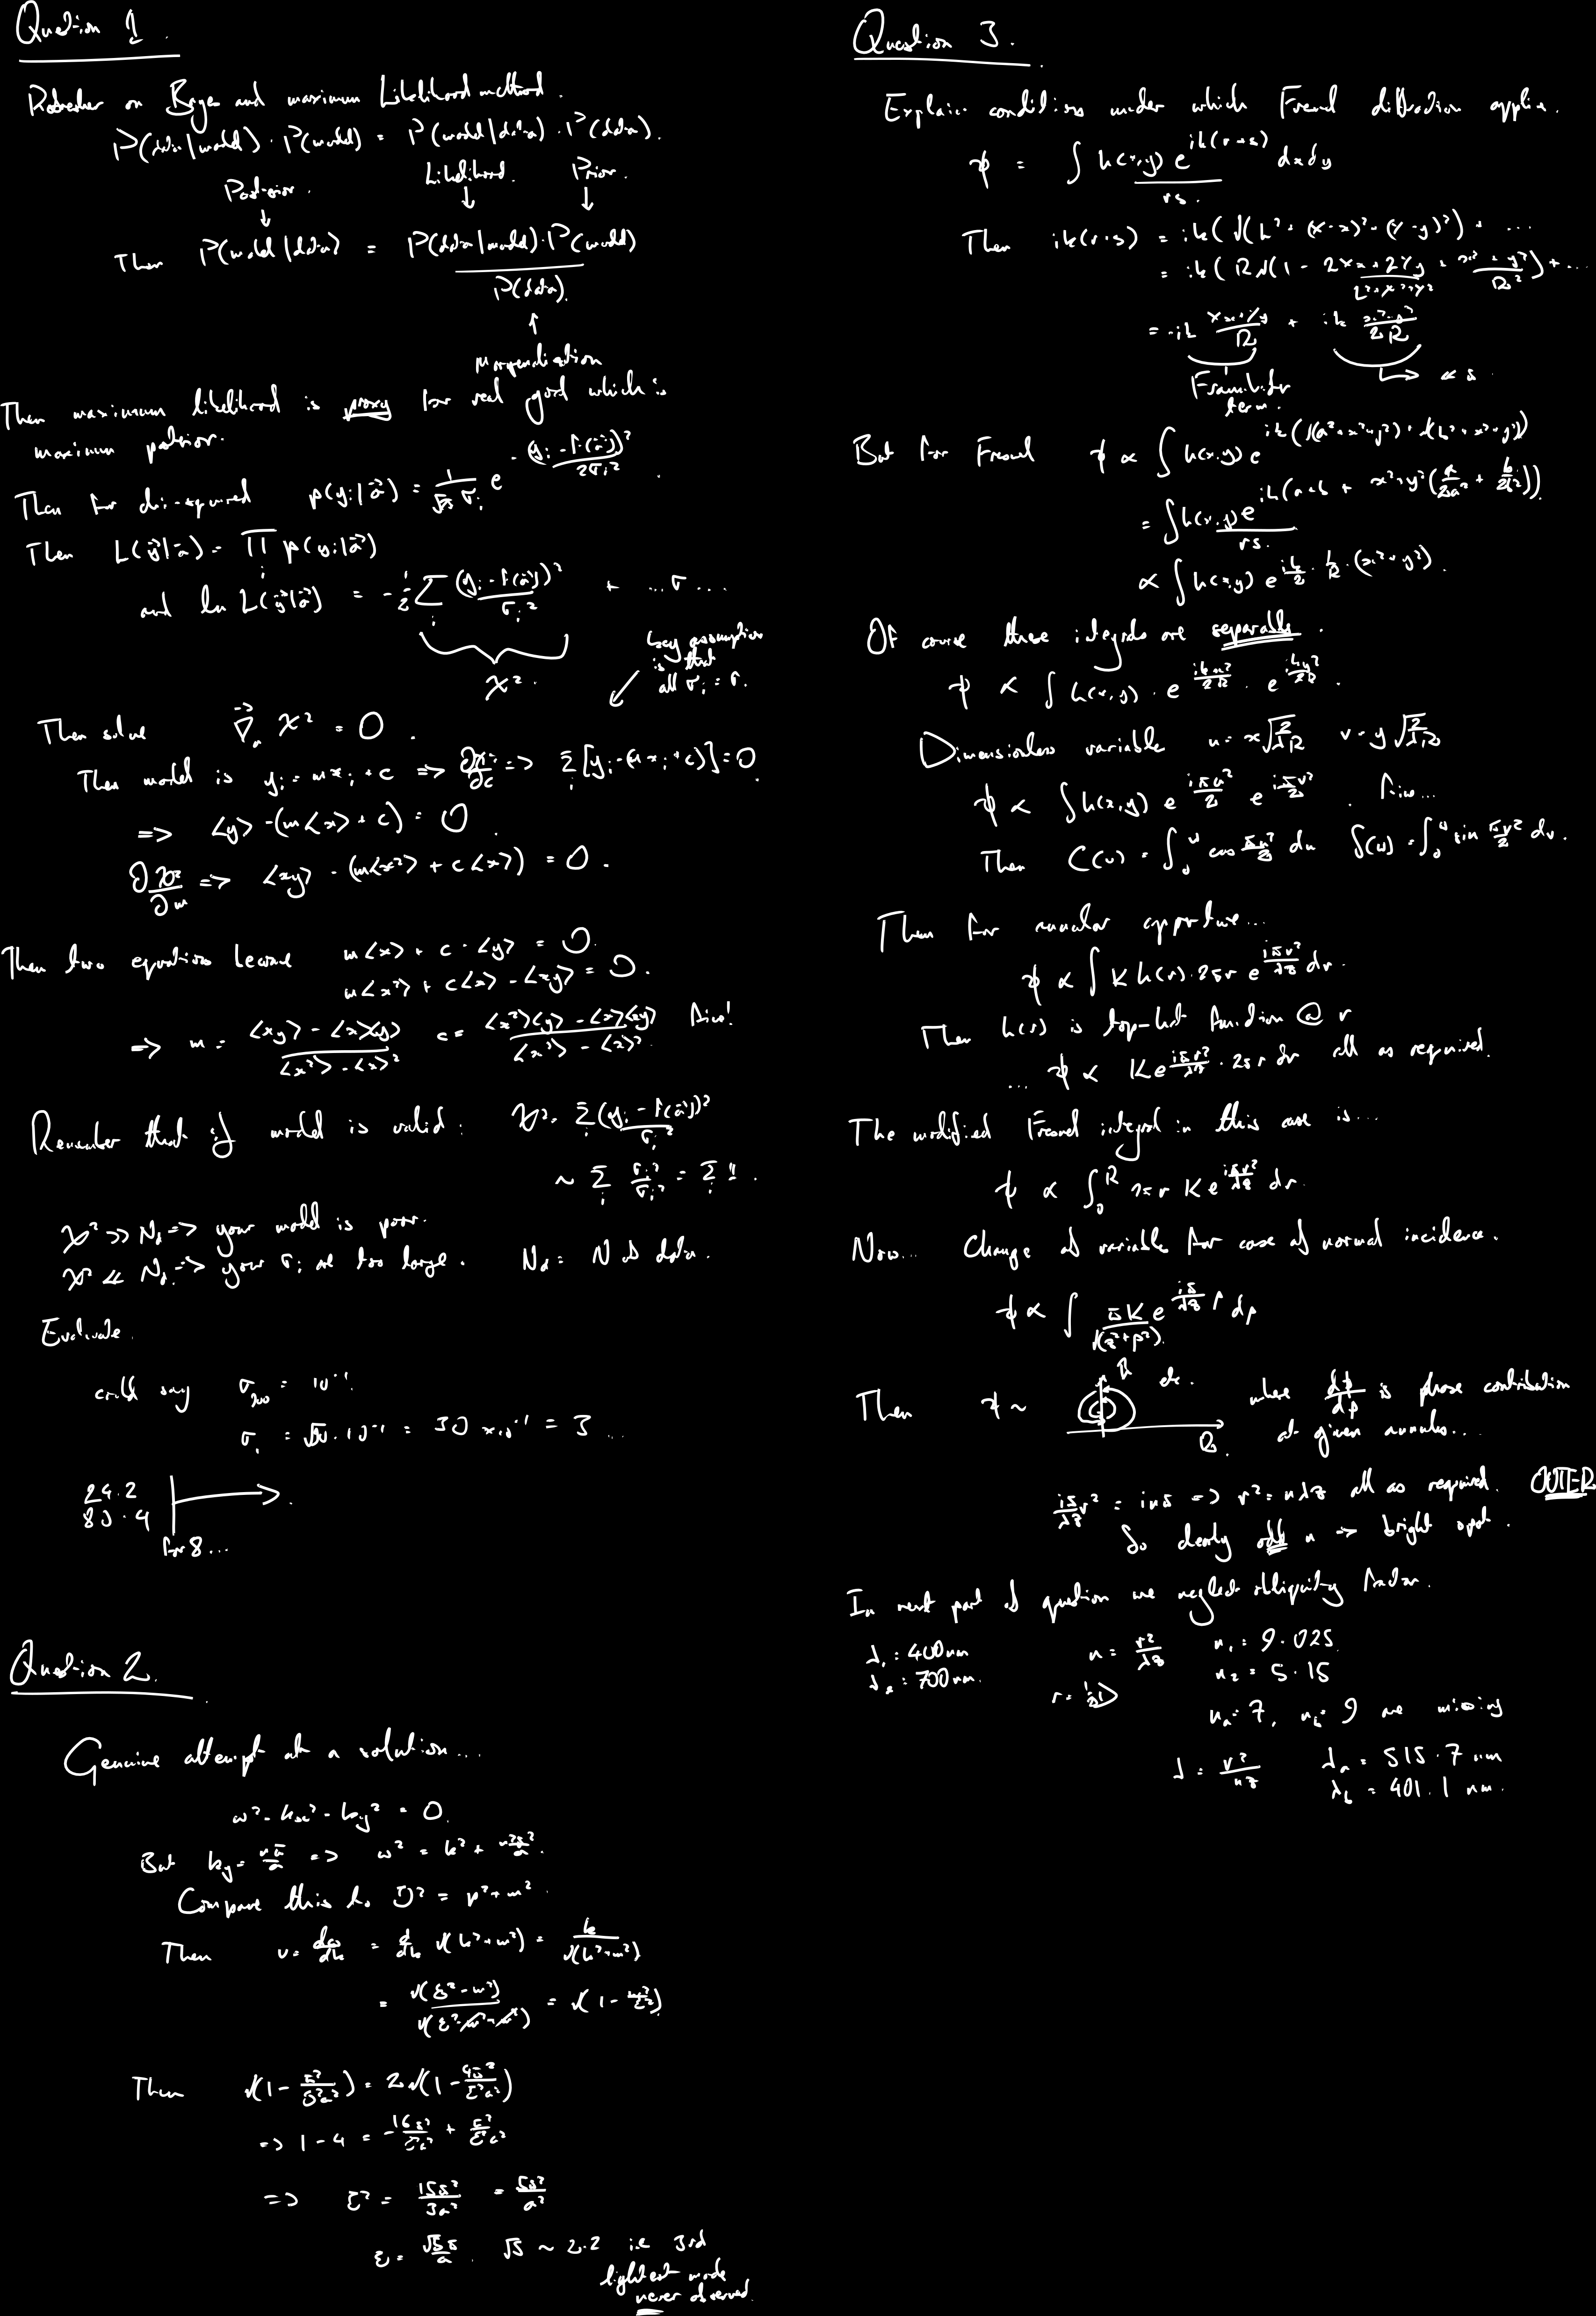 Question 1.
Refresher on Bayes and maximum Likelihood method.
P(data|model) · P(model) = P(model|data) · P(data).
Posterior. Likelihood. Prior.
↓ ↓ ↓
Then P(model|data) = P(data|model)·P(model) / P(data).
↑
Then maximum likelihood is proxy for real goal which is
maximum posterior.
Then for chi-squared p(yᵢ|a⃗) = 1/√2π σᵢ e^-(yᵢ - f(a⃗))²/2σᵢ².
Then L(y⃗|a⃗) = ∏ᵢ p(yᵢ|a⃗)
and ln L(y⃗|a⃗) = -½ Σᵢ (yᵢ - f(a⃗))²/σᵢ² + ...σ...
χ².
key assumption
is that
all σᵢ = σ.
Then solve ∇⃗ₐ χ² = 0.
Then model is yᵢ = mxᵢ + c => ∂χ²/∂c => Σᵢ[yᵢ - (mxᵢ + c)] = 0.
=> <y> - (m<x> + c) = 0.
∂χ²/∂m => <xy> - (m<x²> + c<x>) = 0.
Then two equations become m<x> + c - <y> = 0.
m<x²> + c<x> - <xy> = 0.
=> m = <xy> - <x><y> / <x²> - <x>² c = <x²><y> - <x><xy> / <x²> - <x>². Fine!
Remember that if model is valid: χ² = Σᵢ (yᵢ - f(a⃗))²/σᵢ²
~ Σᵢ σᵢ²/σᵢ² = Σᵢ 1.
χ² >> N_d => your model is poor.
χ² << N_d => your σᵢ are too large. N_d = N of data.
Evaluate.
could say σ₉₀₀ = 10⁻¹.
σ₁ = √900·10⁻¹ = 30 ×10⁻¹ = 3 ...
24.2
80.4
for 8...
Question 2.
Genuine attempt at a solution...
ω² - kₓ² - k_y² = 0.
But k_y = nπ/a => ω² = k² + n²π²/a².
Compare this to E² = p² + m².
Then v = dω/dk = d/dk √(k² + m²) = k/√(k² + m²)
= √(E² - m²)/√(E² - m² + m²) = √(1 - m²/E²)
Then √(1 - π²/E²a²) = 2√(1 - 4π²/E²a²)
=> 1 - 4 = -16π²/E²a² + π²/E²a²
=> E² = 15π²/3a² = 5π²/a²
E = √5π/a. √5 ~ 2.2 i.e 3rd
lightest mode
never observed.
Question 3.
Explain conditions under which Fresnel diffraction applies.
ψ = ∫ h(x,y) e^ik(r+s) / rs. dxdy
Then ik(r+s) = ik(√(L² + (X-x)² + (Y-y)²) + ...
= ik(R√(1 - 2Xx + 2Yy / L²+X²+Y² + x²+y²/R²) + ...
= -ik Xx+Yy/R + ik x²+y²/2R
Fraunhofer
term.
But for Fresnel ψ ∝ ∫ h(x,y) e^ik(√(a²+x²+y²) + √(b²+x²+y²))
= ∫ h(x,y) e^ik(a+b + x²+y²(a/2a² + b/2b²)) / rs.
∝ ∫ h(x,y) e^ik/2 · 1/R · (x²+y²).
Of course these integrals are separable.
ψ ∝ ∫ h(x,y) · e^ikx²/2R · e^iky²/2R.
Dimensionless variable u = x√2/λR v = y√2/λR
ψ ∝ ∫ h(x,y) e^iπu²/2 e^iπv²/2. Fine...
Then C(ω) = ∫₀^ω cos πu²/2 du S(ω) = ∫₀^ω sin πv²/2 dv.
Then for annular apperture...
ψ ∝ ∫ K h(r)·2πr e^iπr²/λz dr.
Then h(r) is top-hat function @ r
... ψ ∝ K e^iπr²/λz · 2πr δr all as required.
The modified Fresnel integral in this case is...
ψ ∝ ∫₀^R 2πr K e^iπr²/λz dr.
Now... Change of variable for case of normal incidence.
ψ ∝ ∫ πK/√(z²+ρ²). e^iπ/λz ρ dρ
Then ψ ~ etc. where dψ/dρ is phase contribution
at given annulus...
iπ/λz r² = inπ => r² = nλz all as required. OUTER
So clearly odd n => bright spot.
In next part of question we neglect obliquity factor.
λ₁ = 400nm n = r²/λz n₁ = 9.025
λ₂ = 700nm. r = ½D n₂ = 5.15
nₐ = 7, n_b = 9 are missing
λ = r²/nz λₐ = 515.7 nm
λ_b = 401.1 nm.